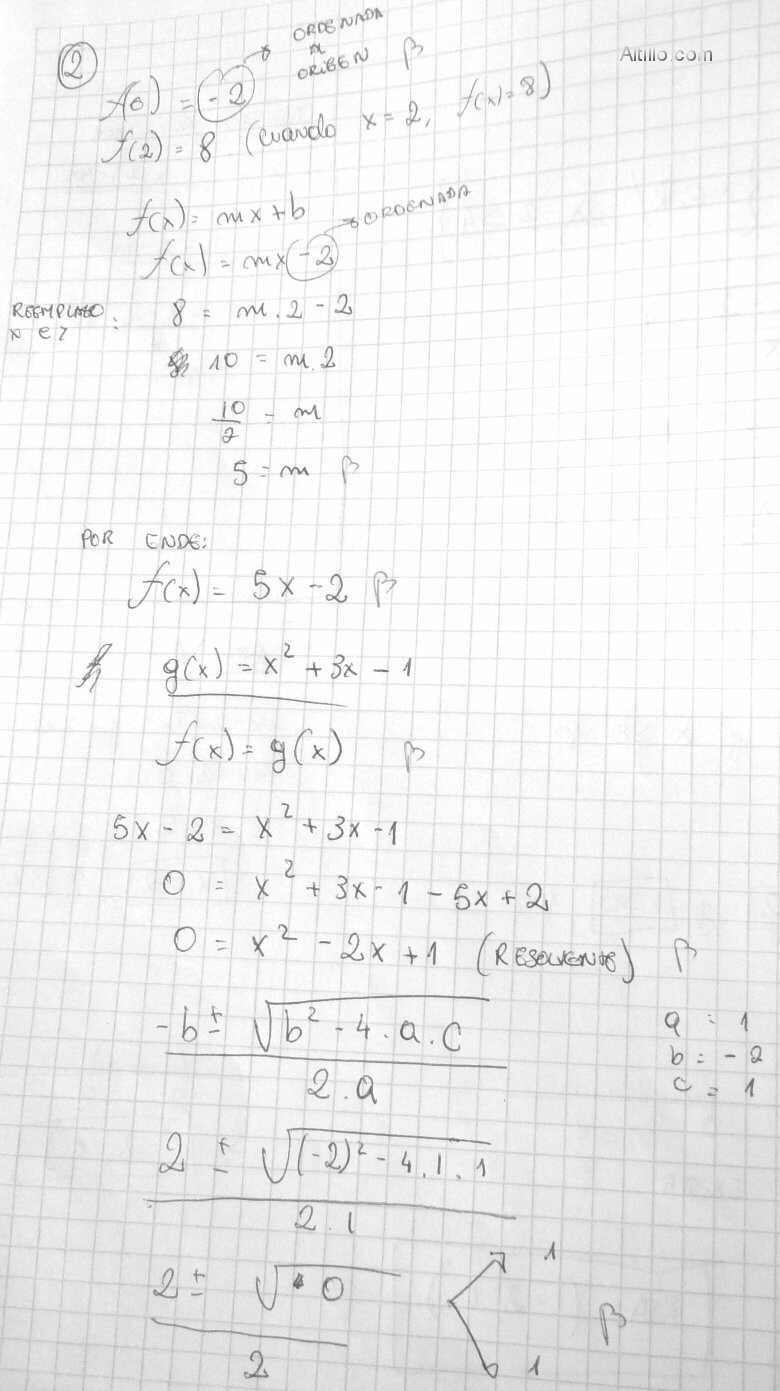 Altillo.com
② f(0) = -2 → ORDENADA AL ORIGEN β
f(2) = 8 (cuando x = 2, f(x) = 8)
f(x) = mx + b
f(x) = mx - 2 → ORDENADA
REEMPLAZO x e y : 8 = m . 2 - 2
10 = m . 2
10/2 = m
5 = m β
POR ENDE:
f(x) = 5x - 2 β
g(x) = x² + 3x - 1
f(x) = g(x) β
5x - 2 = x² + 3x - 1
0 = x² + 3x - 1 - 5x + 2
0 = x² - 2x + 1 (RESOLVENTE) β
-b ± √b² - 4 . a . c
2 . a
a = 1
b = -2
c = 1
2 ± √(-2)² - 4 . 1 . 1
2 . 1
2 ± √0
2
1
1 β